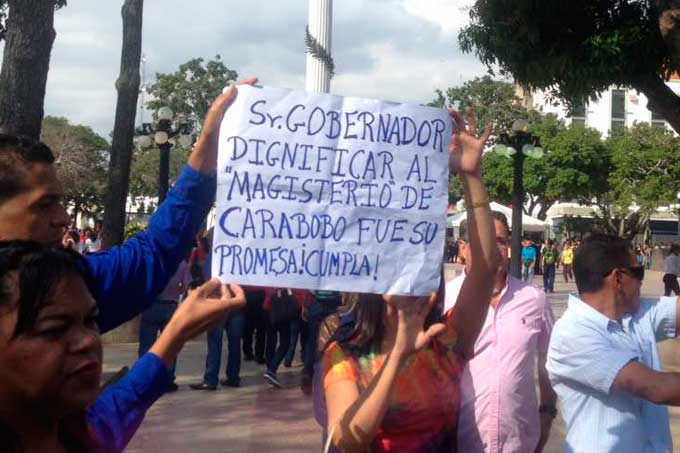 Sr. GOBERNADOR
DIGNIFICAR AL
"MAGISTERIO" DE
CARABOBO FUE SU
PROMESA! CUMPLA!